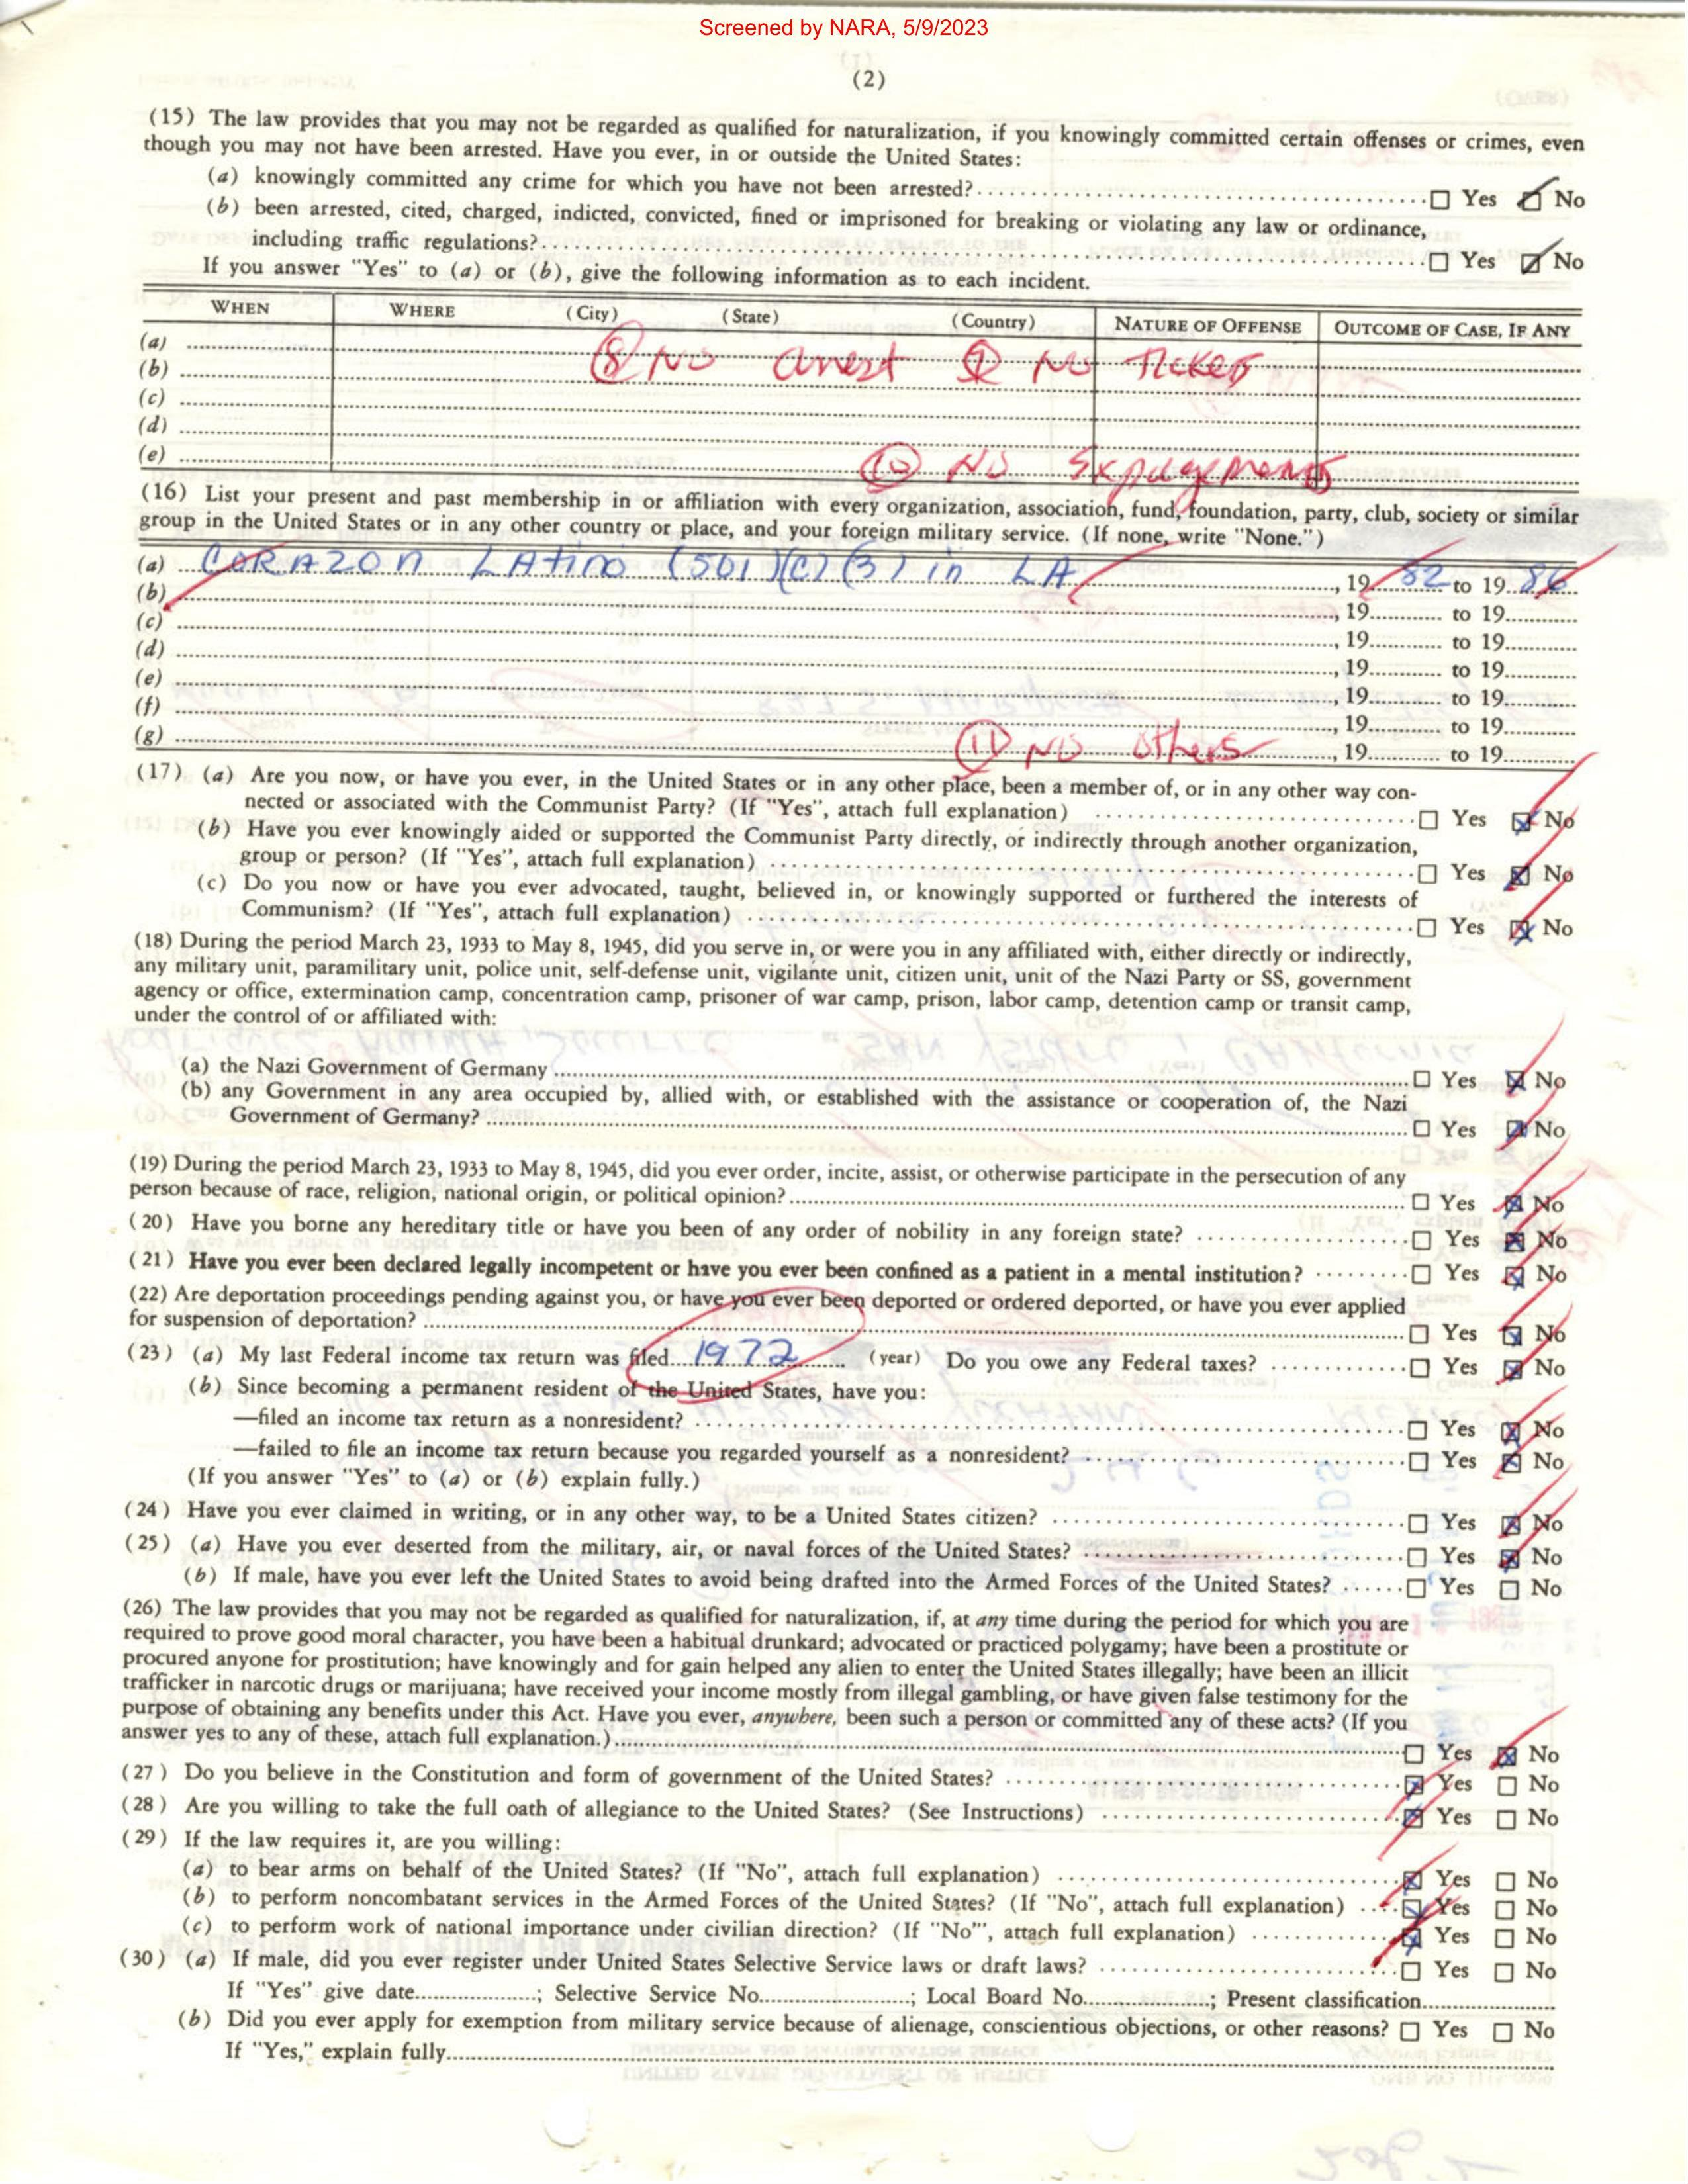 Screened by NARA, 5/9/2023
(2)
(15) The law provides that you may not be regarded as qualified for naturalization, if you knowingly committed certain offenses or crimes, even
though you may not have been arrested. Have you ever, in or outside the United States:
(a) knowingly committed any crime for which you have not been arrested? ☐ Yes ☑ No
(b) been arrested, cited, charged, indicted, convicted, fined or imprisoned for breaking or violating any law or ordinance,
including traffic regulations? ☐ Yes ☑ No
If you answer "Yes" to (a) or (b), give the following information as to each incident.
WHEN WHERE (City) (State) (Country) NATURE OF OFFENSE OUTCOME OF CASE, IF ANY
(a)
(b) 8 No arrest 9 No Ticket
(c)
(d)
(e) 10 No Expungements
(16) List your present and past membership in or affiliation with every organization, association, fund, foundation, party, club, society or similar
group in the United States or in any other country or place, and your foreign military service. (If none, write "None.")
(a) CORAZON LAtino (501)(C)(3) in LA, 19 82 to 19 86
(b) , 19 to 19
(c) , 19 to 19
(d) , 19 to 19
(e) , 19 to 19
(f) , 19 to 19
(g) 11 No others , 19 to 19
(17) (a) Are you now, or have you ever, in the United States or in any other place, been a member of, or in any other way con-
nected or associated with the Communist Party? (If "Yes", attach full explanation) ☐ Yes ☒ No
(b) Have you ever knowingly aided or supported the Communist Party directly, or indirectly through another organization,
group or person? (If "Yes", attach full explanation) ☐ Yes ☒ No
(c) Do you now or have you ever advocated, taught, believed in, or knowingly supported or furthered the interests of
Communism? (If "Yes", attach full explanation) ☐ Yes ☒ No
(18) During the period March 23, 1933 to May 8, 1945, did you serve in, or were you in any affiliated with, either directly or indirectly,
any military unit, paramilitary unit, police unit, self-defense unit, vigilante unit, citizen unit, unit of the Nazi Party or SS, government
agency or office, extermination camp, concentration camp, prisoner of war camp, prison, labor camp, detention camp or transit camp,
under the control of or affiliated with:
(a) the Nazi Government of Germany ☐ Yes ☒ No
(b) any Government in any area occupied by, allied with, or established with the assistance or cooperation of, the Nazi
Government of Germany? ☐ Yes ☒ No
(19) During the period March 23, 1933 to May 8, 1945, did you ever order, incite, assist, or otherwise participate in the persecution of any
person because of race, religion, national origin, or political opinion? ☐ Yes ☒ No
(20) Have you borne any hereditary title or have you been of any order of nobility in any foreign state? ☐ Yes ☒ No
(21) Have you ever been declared legally incompetent or have you ever been confined as a patient in a mental institution? ☐ Yes ☒ No
(22) Are deportation proceedings pending against you, or have you ever been deported or ordered deported, or have you ever applied
for suspension of deportation? ☐ Yes ☒ No
(23) (a) My last Federal income tax return was filed 1972 (year) Do you owe any Federal taxes? ☐ Yes ☒ No
(b) Since becoming a permanent resident of the United States, have you:
—filed an income tax return as a nonresident? ☐ Yes ☒ No
—failed to file an income tax return because you regarded yourself as a nonresident? ☐ Yes ☒ No
(If you answer "Yes" to (a) or (b) explain fully.)
(24) Have you ever claimed in writing, or in any other way, to be a United States citizen? ☐ Yes ☒ No
(25) (a) Have you ever deserted from the military, air, or naval forces of the United States? ☐ Yes ☒ No
(b) If male, have you ever left the United States to avoid being drafted into the Armed Forces of the United States? ☐ Yes ☐ No
(26) The law provides that you may not be regarded as qualified for naturalization, if, at any time during the period for which you are
required to prove good moral character, you have been a habitual drunkard; advocated or practiced polygamy; have been a prostitute or
procured anyone for prostitution; have knowingly and for gain helped any alien to enter the United States illegally; have been an illicit
trafficker in narcotic drugs or marijuana; have received your income mostly from illegal gambling, or have given false testimony for the
purpose of obtaining any benefits under this Act. Have you ever, anywhere, been such a person or committed any of these acts? (If you
answer yes to any of these, attach full explanation.) ☐ Yes ☒ No
(27) Do you believe in the Constitution and form of government of the United States? ☒ Yes ☐ No
(28) Are you willing to take the full oath of allegiance to the United States? (See Instructions) ☒ Yes ☐ No
(29) If the law requires it, are you willing:
(a) to bear arms on behalf of the United States? (If "No", attach full explanation) ☒ Yes ☐ No
(b) to perform noncombatant services in the Armed Forces of the United States? (If "No", attach full explanation) ☒ Yes ☐ No
(c) to perform work of national importance under civilian direction? (If "No"', attach full explanation) ☒ Yes ☐ No
(30) (a) If male, did you ever register under United States Selective Service laws or draft laws? ☐ Yes ☐ No
If "Yes" give date; Selective Service No.; Local Board No.; Present classification
(b) Did you ever apply for exemption from military service because of alienage, conscientious objections, or other reasons? ☐ Yes ☐ No
If "Yes," explain fully